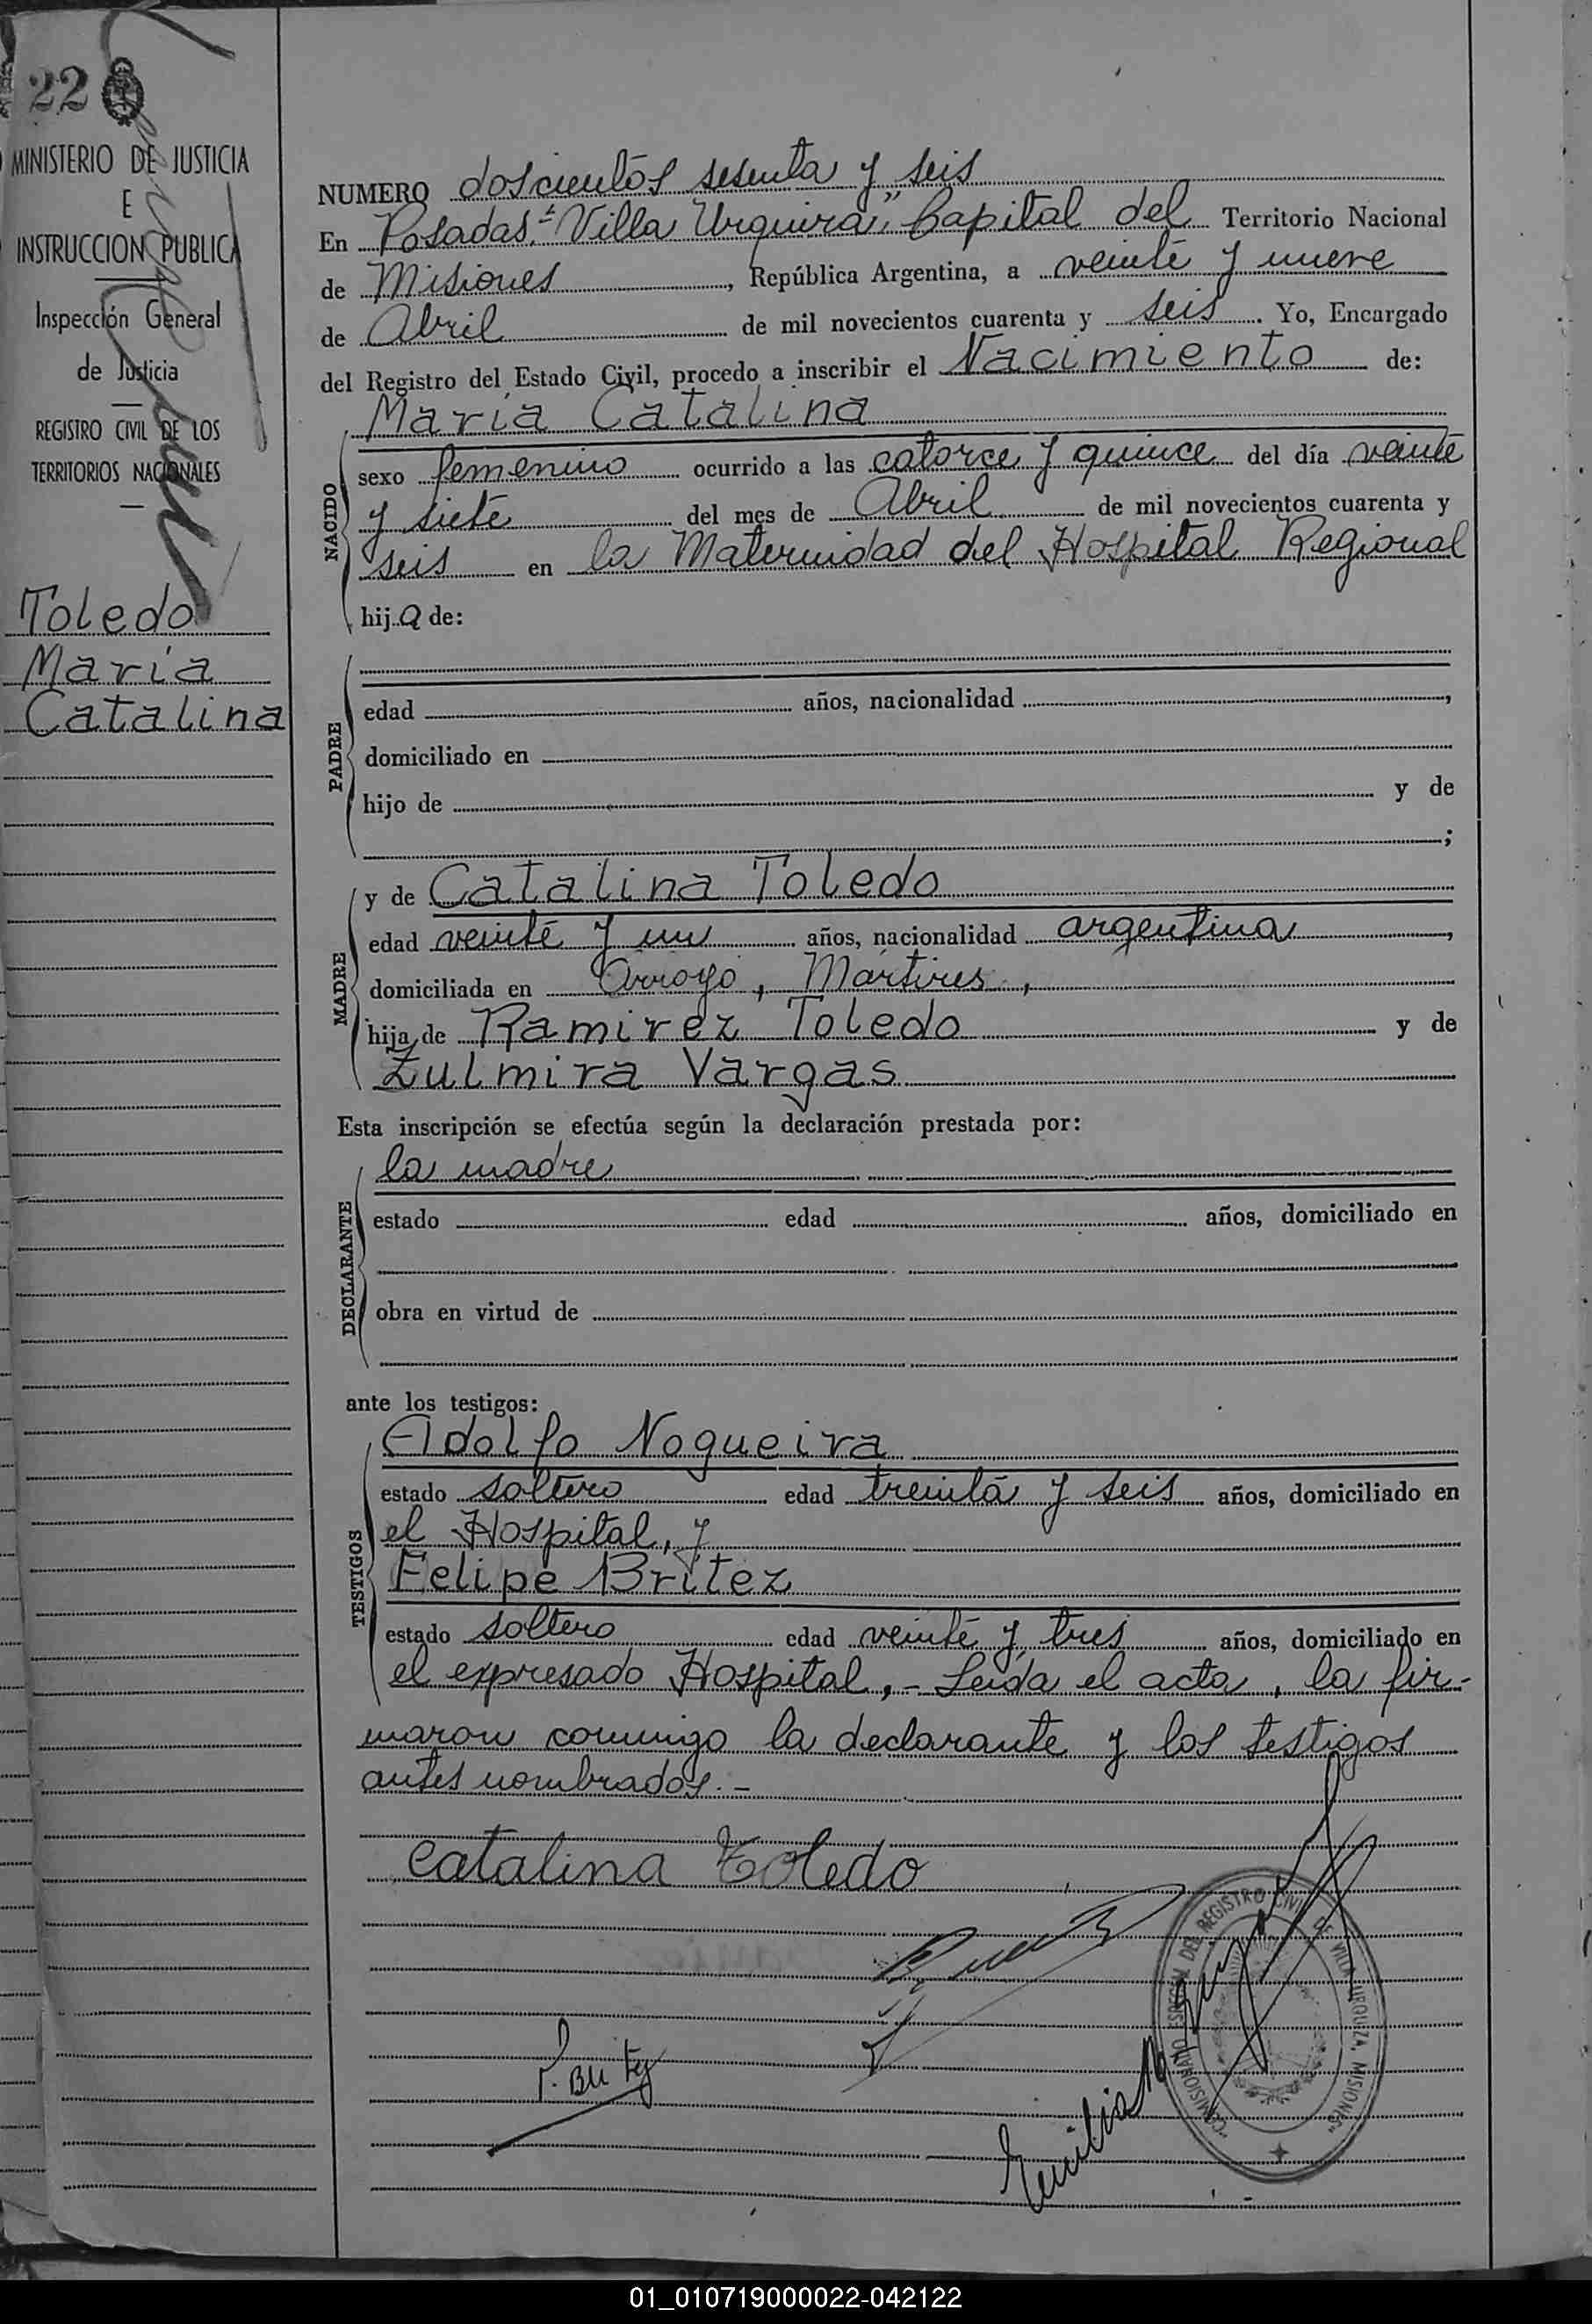 22
MINISTERIO DE JUSTICIA
E
INSTRUCCION PUBLICA
Inspección General
de Justicia
REGISTRO CIVIL DE LOS
TERRITORIOS NACIONALES
Toledo
María
Catalina
NUMERO doscientos sesenta y seis
En Posadas "Villa Urquiza", Capital del Territorio Nacional
de Misiones, República Argentina, a veinte y nueve
de Abril de mil novecientos cuarenta y seis. Yo, Encargado
del Registro del Estado Civil, procedo a inscribir el Nacimiento de:
María Catalina
NACIDO
sexo femenino ocurrido a las catorce y quince del día veinte
y siete del mes de Abril de mil novecientos cuarenta y
seis en la Maternidad del Hospital Regional
hija de:
PADRE
edad años, nacionalidad ,
domiciliado en
hijo de y de
;
MADRE
y de Catalina Toledo
edad veinte y un años, nacionalidad argentina,
domiciliada en Arroyo, Mártires,
hija de Ramirez Toledo y de
Zulmira Vargas
Esta inscripción se efectúa según la declaración prestada por:
DECLARANTE
la madre
estado edad años, domiciliado en
obra en virtud de
ante los testigos:
TESTIGOS
Adolfo Nogueira
estado soltero edad treinta y seis años, domiciliado en
el Hospital, y
Felipe Britez
estado soltero edad veinte y tres años, domiciliado en
el expresado Hospital,- Leída el acta, la fir-
maron conmigo la declarante y los testigos
antes nombrados.-
Catalina Toledo
F. Britez
Emiliano
COMISIONATO ESPECIAL DEL REGISTRO CIVIL DE VILLA URQUIZA, MISIONES
01_010719000022-042122